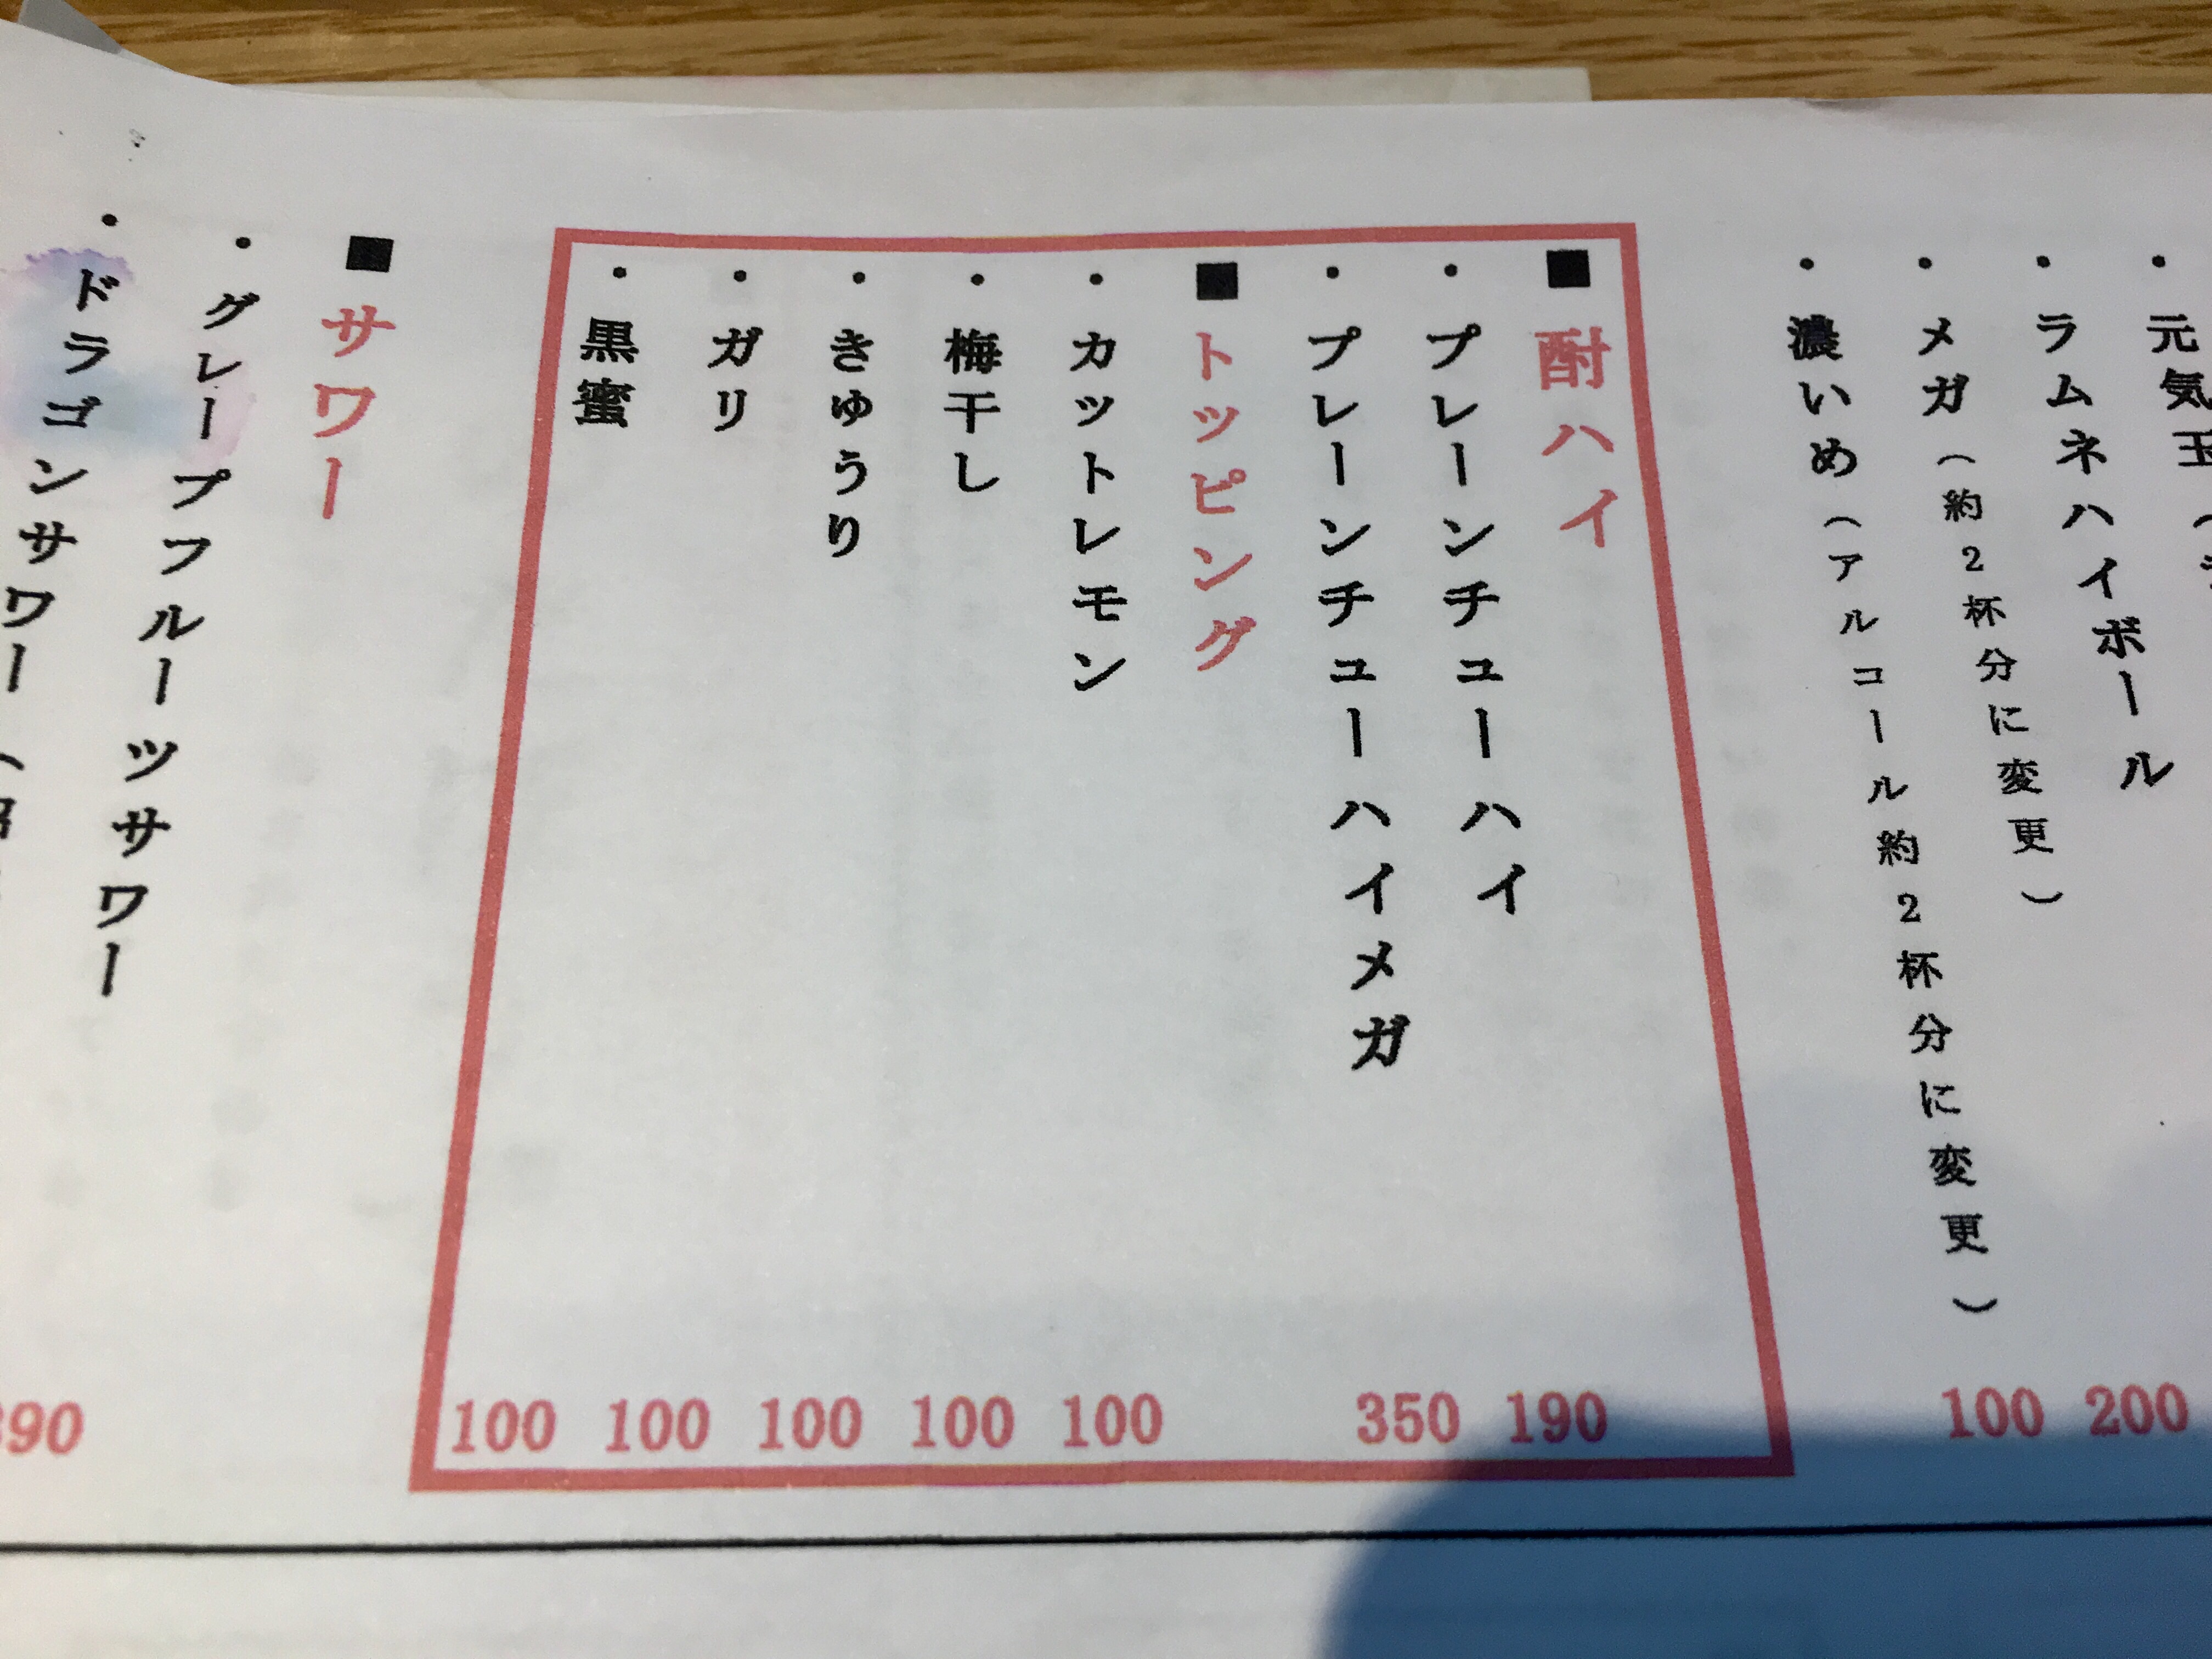 ・元気玉（
・ラムネハイボール
・メガ（約2杯分に変更）
200
・濃いめ（アルコール約2杯分に変更）
100
■酎ハイ
・プレーンチューハイ
190
・プレーンチューハイメガ
350
■トッピング
・カットレモン
100
・梅干し
100
・きゅうり
100
・ガリ
100
・黒蜜
100
■サワー
・グレープフルーツサワー
・ドラゴンサワー（
90